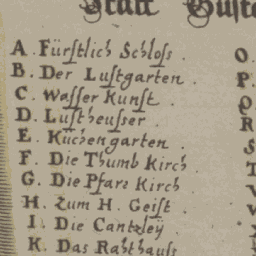 Statt Gust
A. Fürſtlich Schloſs .
B. Der Luſtgarten .
C. Waſſer Kunſt .
D. Luſtheuſſer
E. Küchengarten .
F. Die Thumb Kirch
G. Die Pfars Kirch
H. Zum H. Geiſt .
I. Die Cantzleÿ
K. Das Rahthauſs
O.
P.
Q.
R
S
T
V